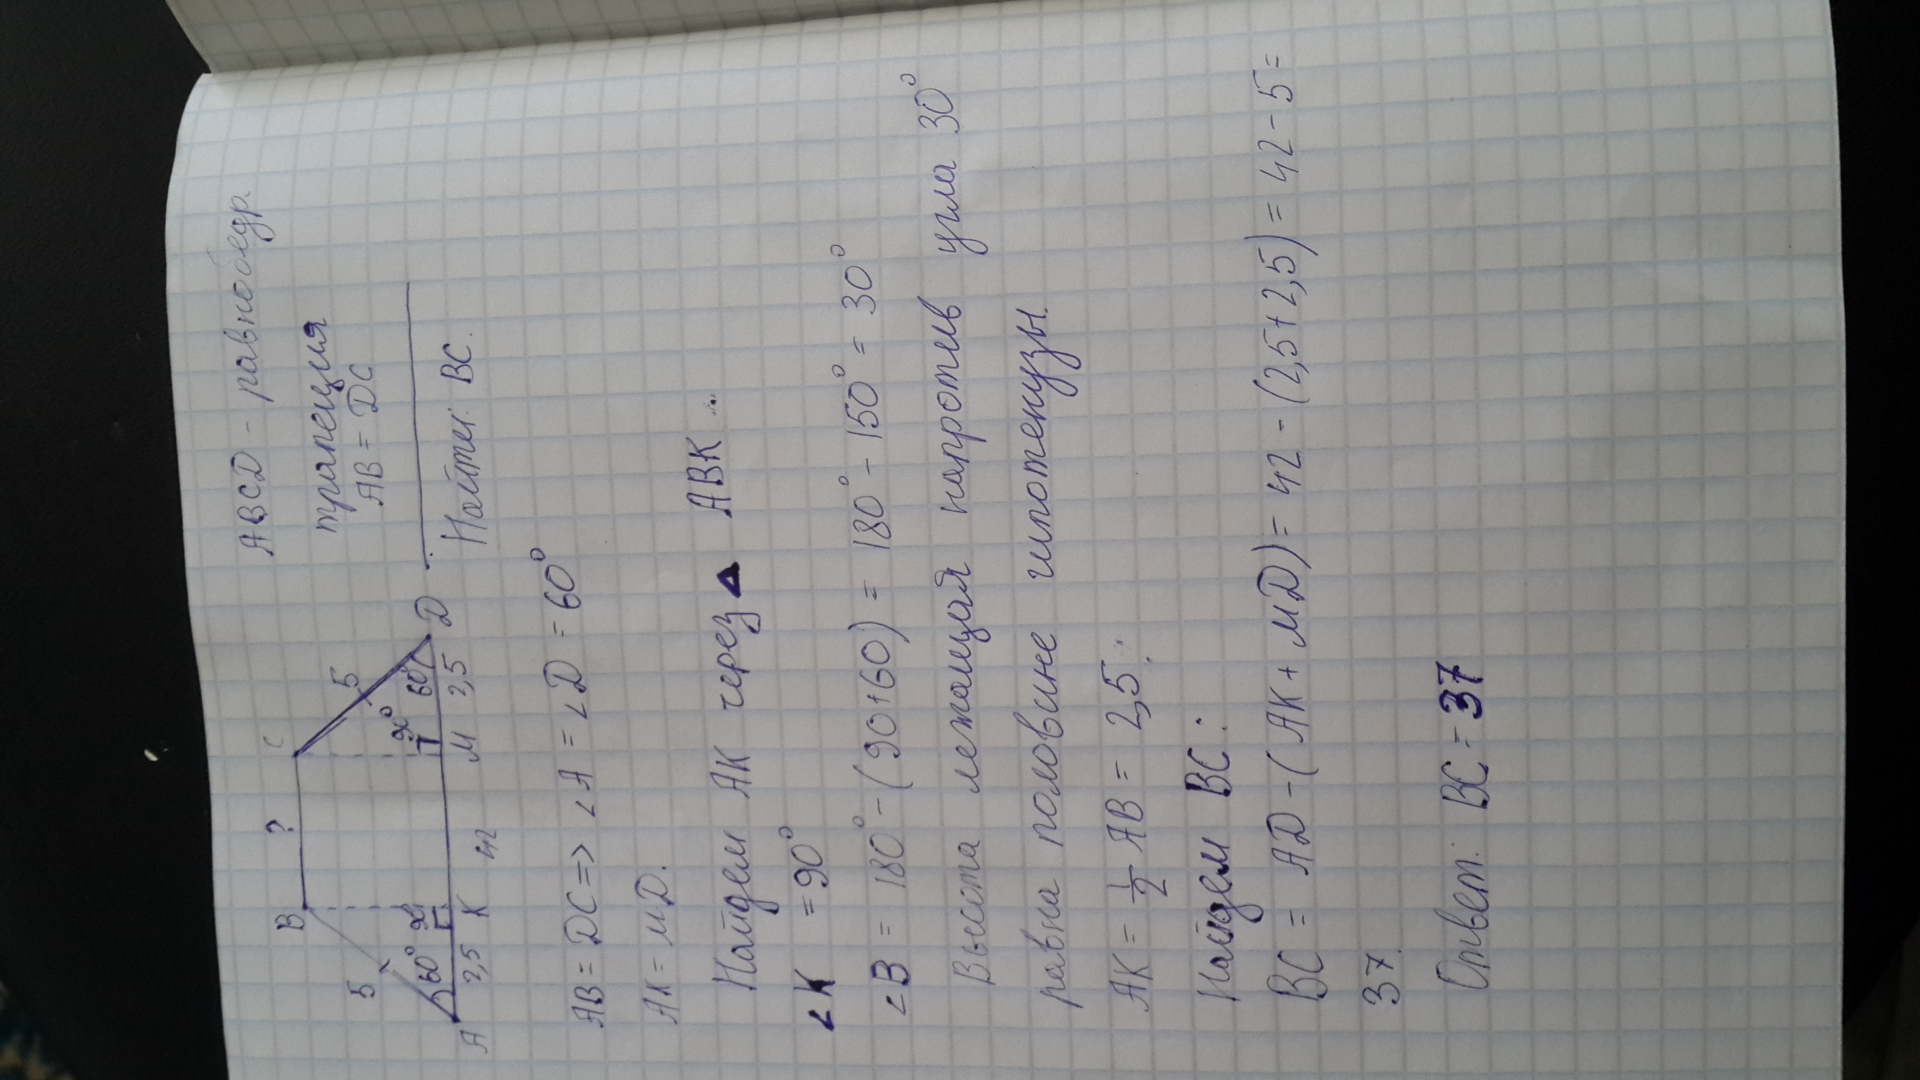 ABCD - равнобедр.
трапеция
AB = DC
Найти: BC.
B ? C
5 5
60° 90 90° 60°
A 2,5 K 42 M 2,5 D
AB = DC => ∠A = ∠D = 60°
AK = MD.
Найдем AK через ▲ ABK
∠K = 90°
∠B = 180° - (90+60) = 180° - 150° = 30°
Высота лежащая напротив угла 30°
равна половине гипотенузы.
AK = 1/2 AB = 2,5.
Найдем BC:
BC = AD - (AK + MD) = 42 - (2,5+2,5) = 42 - 5 =
37.
Ответ: BC = 37